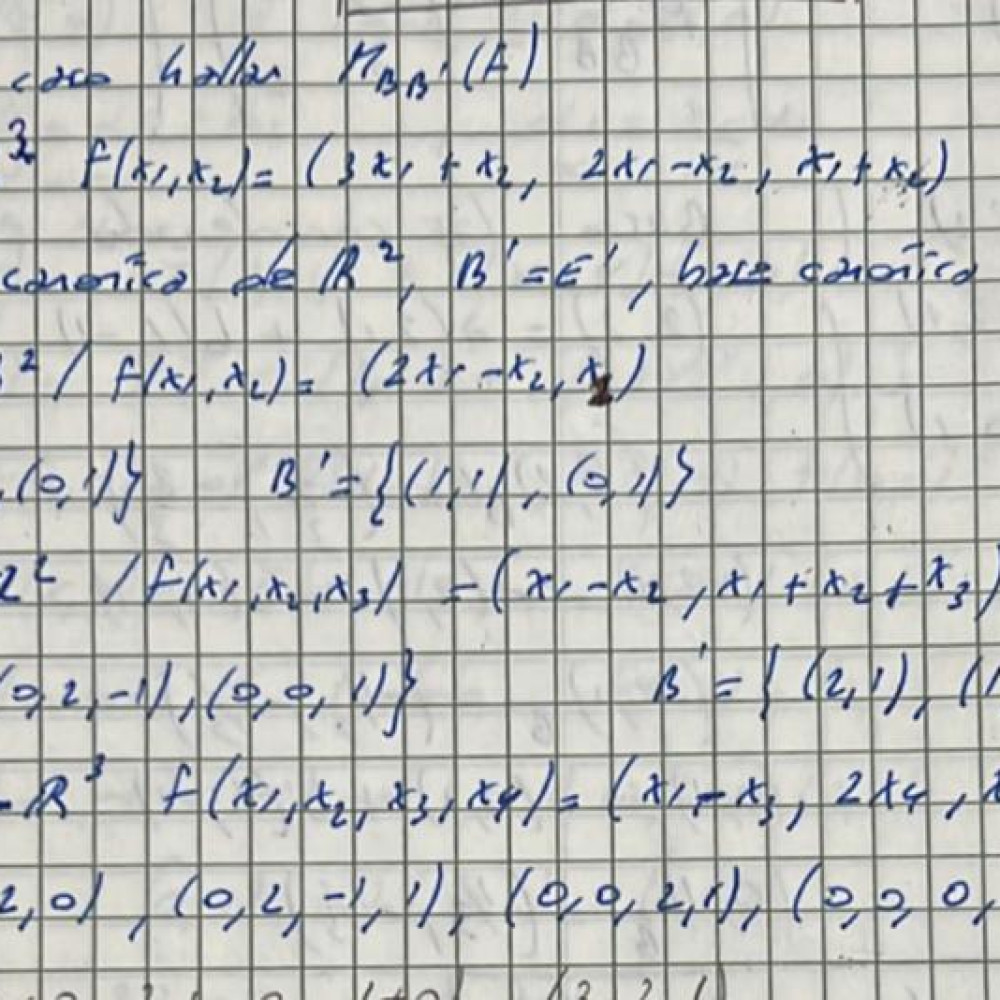 caso hallar M_BB'(f)
3 f(x₁,x₂)= (3x₁ + x₂, 2x₁ -x₂, x₁+x₂)
canonica de R², B'=E', base canonica
² / f(x₁,x₂)= (2x₁ -x₂, x₂)
(0,1)} B'={(1,1), (0,1)}
R² /f(x₁,x₂,x₃) =(x₁-x₂, x₁+x₂+x₃)
(0,2,-1),(0,0,1)} B'={ (2,1), (1
R³ f(x₁,x₂,x₃,x₄)= (x₁-x₃, 2x₄,
2,0), (0,2,-1,1), (0,0,2,1), (0,0,0,